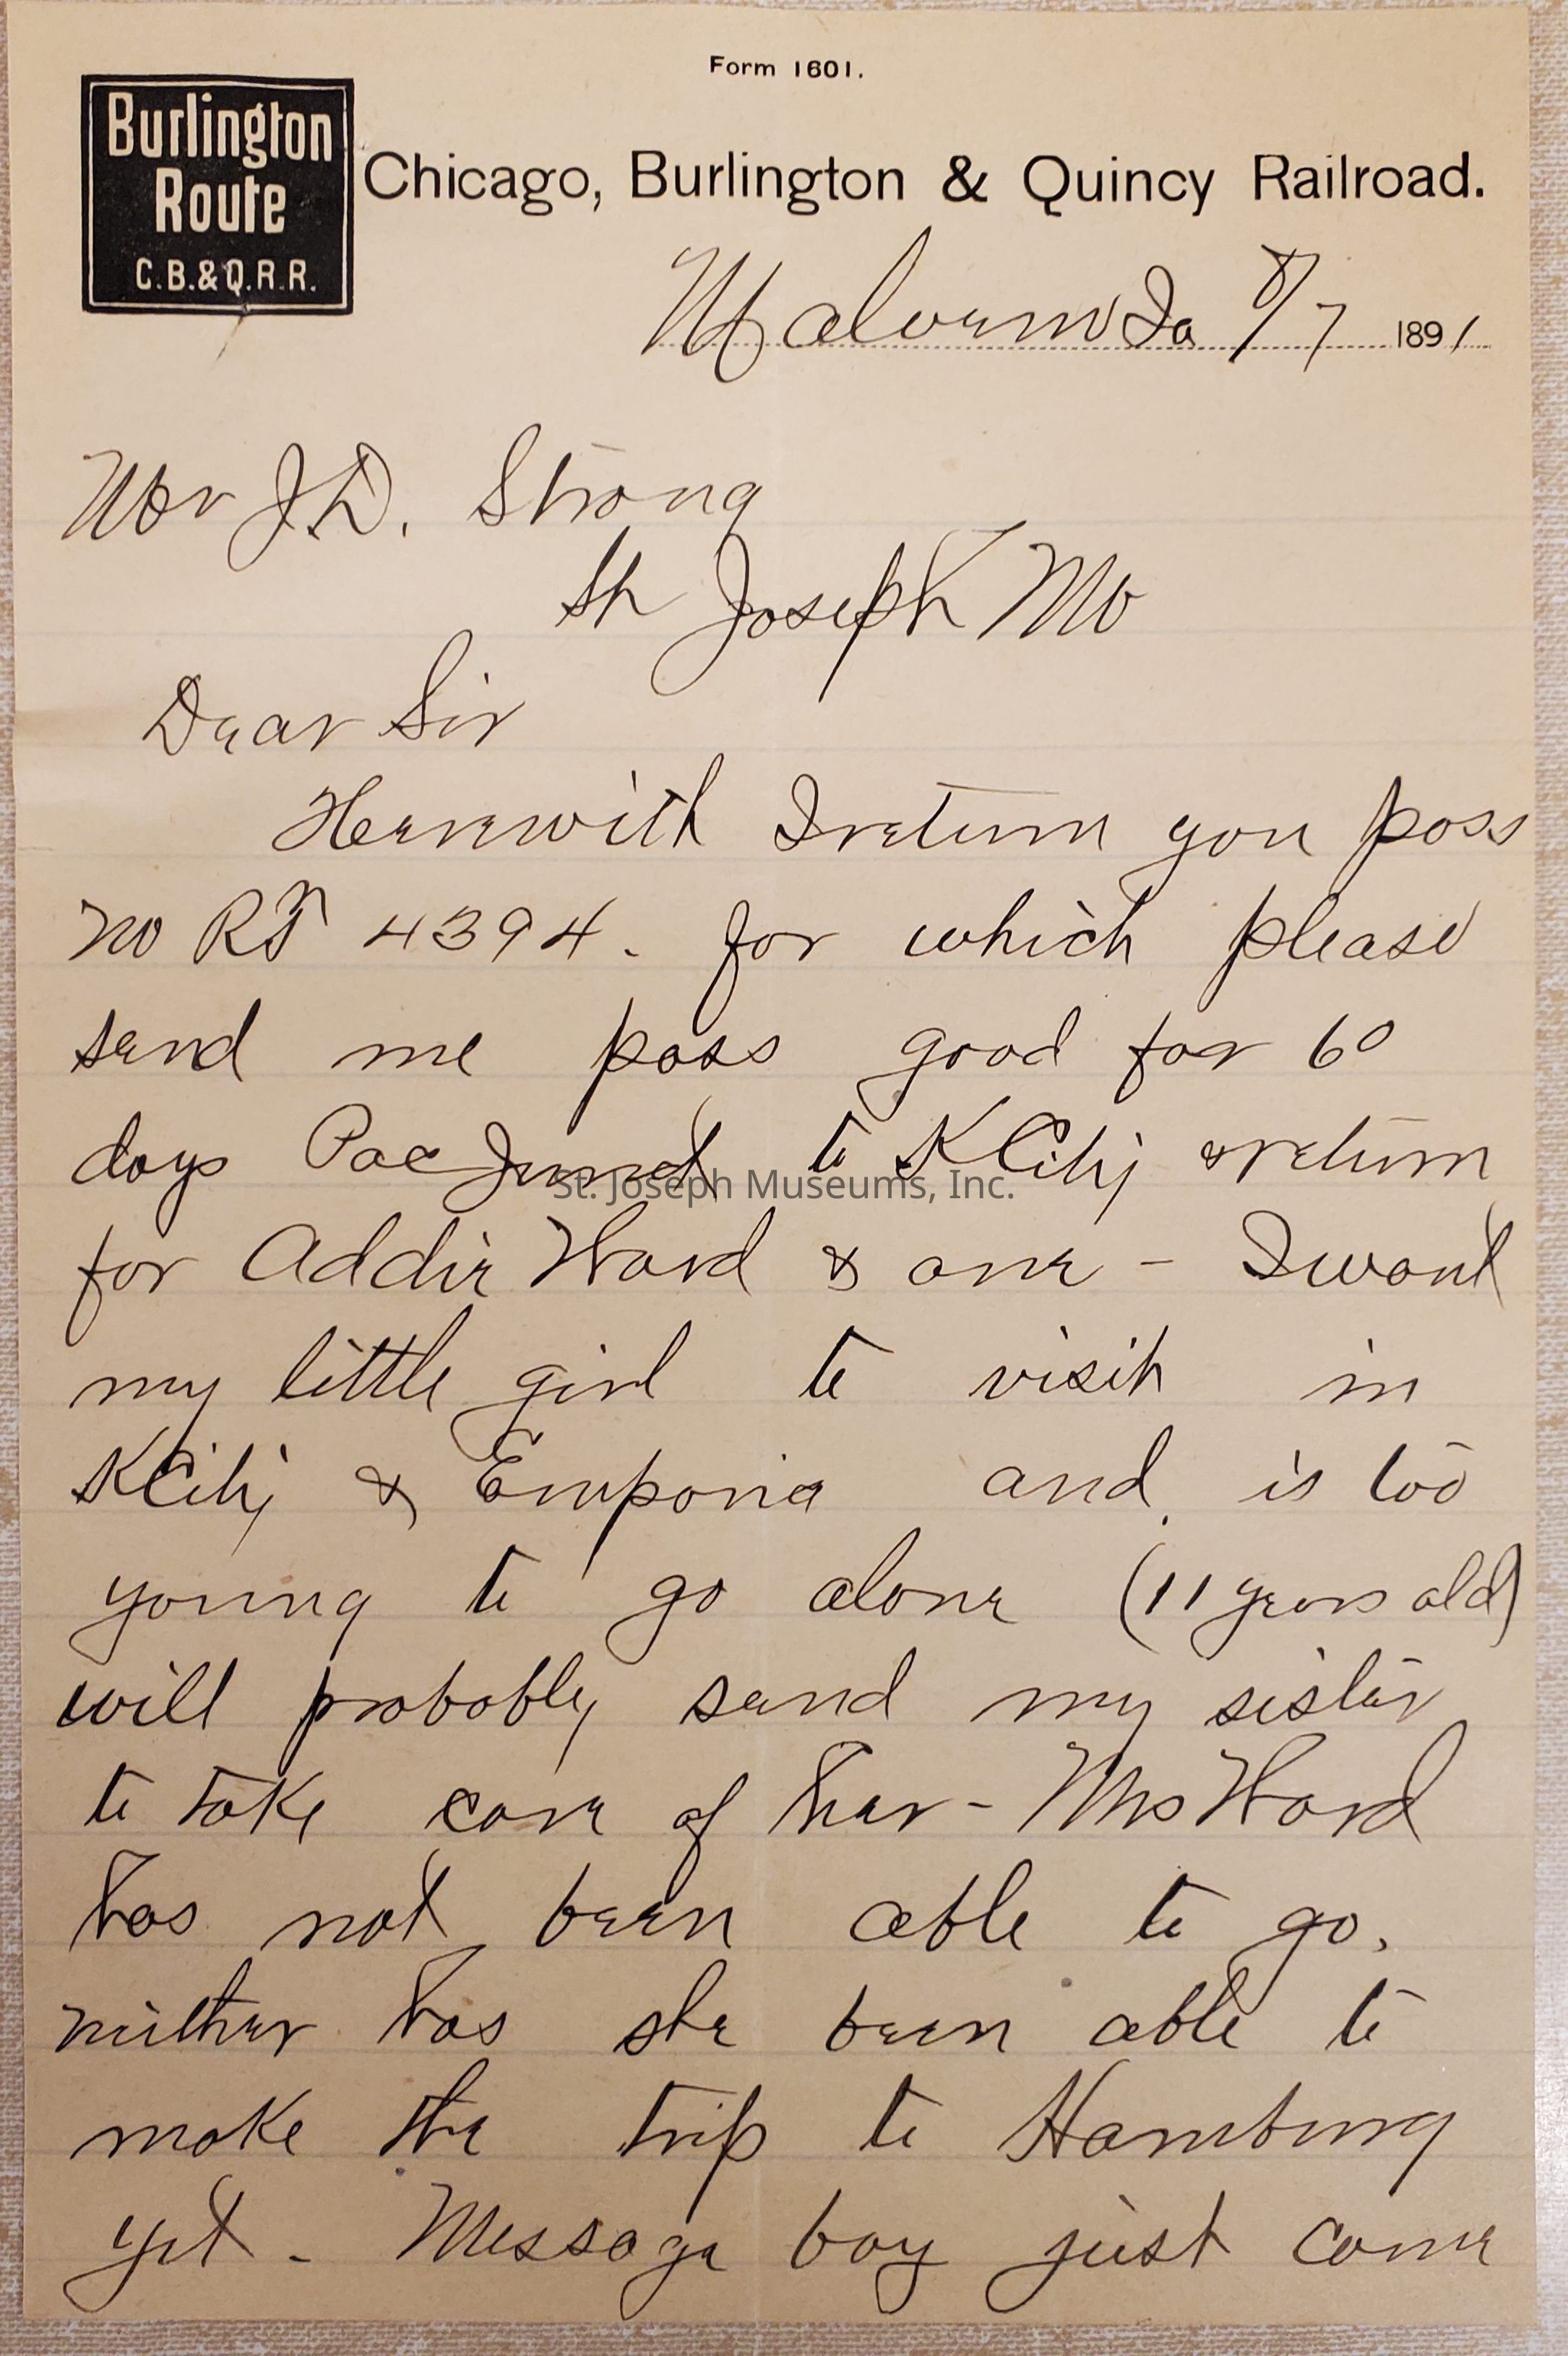 Form 1601.
Burlington
Route
C.B.&Q.R.R.
Chicago, Burlington & Quincy Railroad.
Malvern Ia 8/7 1891
Mr J.D. Strong
St Joseph Mo
Dear Sir
Herewith I return you pass
no RT 4394. for which please
send me pass good for 60
days Pac Junct to K City & return
St. Joseph Museums, Inc.
for Addie Ward & one - I want
my little girl to visit in
K City & Emporia and is too
young to go alone (11 years old)
will probably send my sister
to take care of her - Mrs Ward
has not been able to go.
neither has she been able to
make the trip to Hamburg
yet - Message boy just come